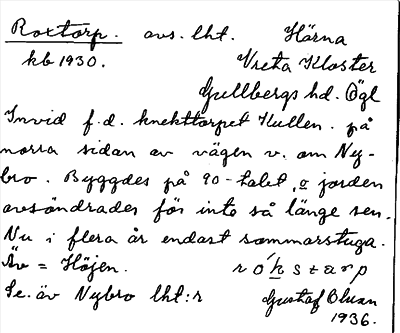 Roxtorp. avs. lht. Hörna
kb 1930. Vreta Kloster
Gullbergs hd. Ögl
Invid f.d. knekttorpet Kullen. på
norra sidan av vägen v. om Ny-
bro. Byggdes på 90-talet, o jorden
avsöndrades för inte så länge sen.
Nu i flera år endast sommarstuga.
Äv = Höjen. r ó h s t a r p
Se. äv Nybro lht:r Gustaf Olsson
1936.